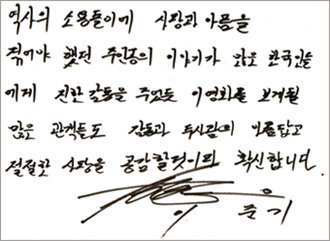 역사의 소용돌이에 사랑과 아픔을
겪어야 했던 주인공의 이야기가 많은 한국인들
에게 진한 감동을 주었듯 이영화를 보게될
많은 관객들도 감독과 투사람의 아름답고
절절한 사랑을 공감할것이라 확신합니다.
이 준 기